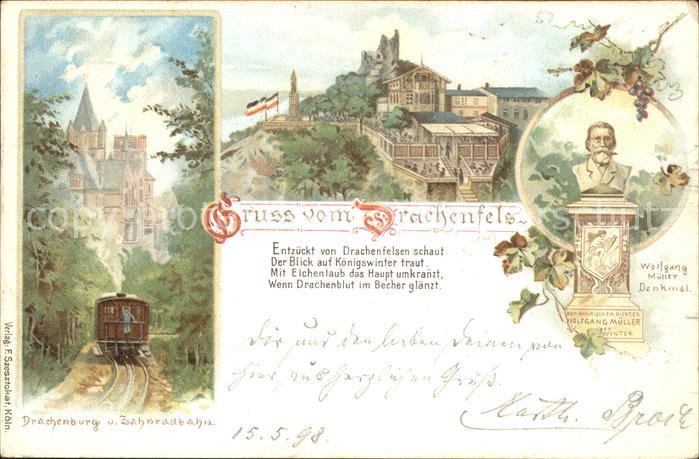 Gruss vom Drachenfels.
Entzückt von Drachenfelsen schaut
Der Blick auf Königswinter traut.
Mit Eichenlaub das Haupt umkränzt,
Wenn Drachenblut im Becher glänzt.
Wolfgang
Müller
Denkmal.
DEM RHEINISCHEN DICHTER
WOLFGANG MÜLLER
VON
WINTER
Dir und den lieben Deinen von
hier aus herzlichen Gruß.
15.5.98.
Drachenburg u. Zahnradbahn.
Verlag: F. Szesztokat, Köln.